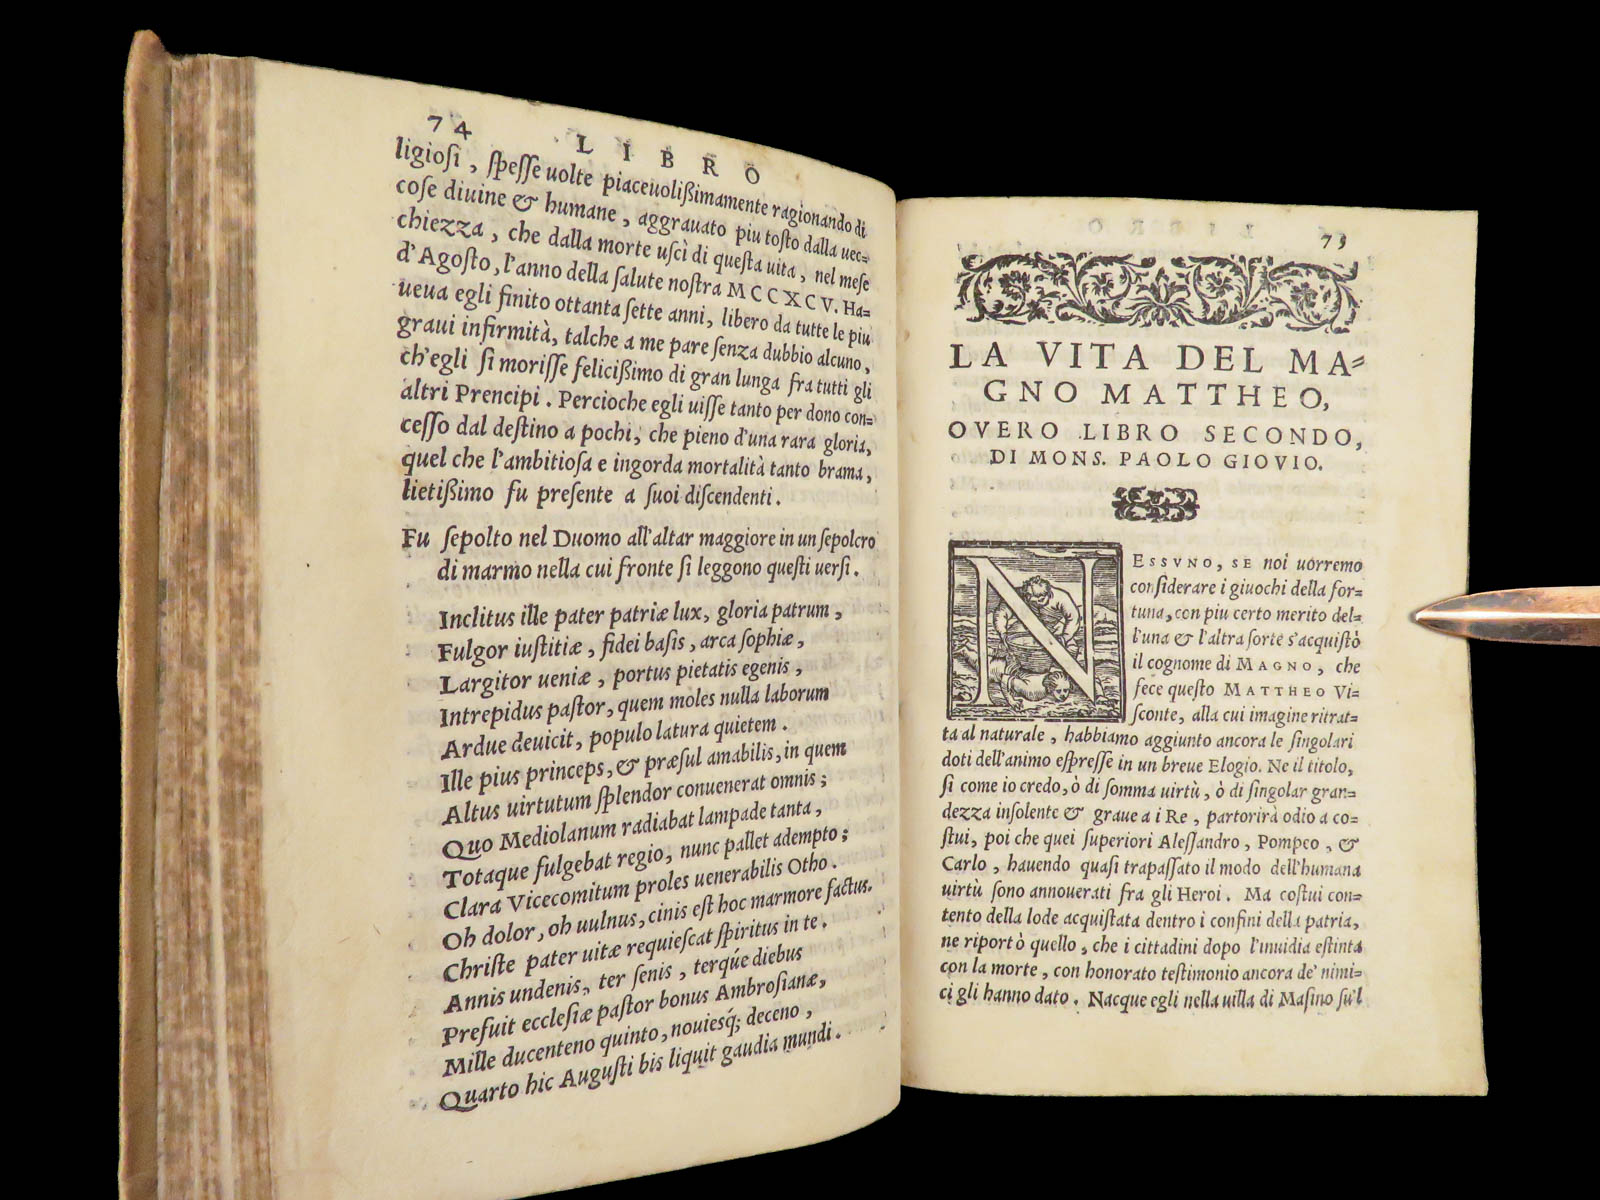 74 LIBRO
ligiosi, speſſe uolte piaceuolißimamente ragionando di
coſe diuine & humane, aggrauato piu toſto dalla uec=
chiezza, che dalla morte uſcì di queſta uita, nel meſe
d'Agoſto, l'anno della ſalute noſtra MCCXCV. Ha=
ueua egli finito ottanta ſette anni, libero da tutte le piu
graui infirmità, talche a me pare ſenza dubbio alcuno,
ch'egli ſi moriſſe felicißimo di gran lunga fra tutti gli
altri Prencipi. Percioche egli uiſſe tanto per dono con=
ceſſo dal deſtino a pochi, che pieno d'una rara gloria,
quel che l'ambitioſa e ingorda mortalità tanto brama,
lietißimo fu preſente a ſuoi diſcendenti.
Fu ſepolto nel Duomo all'altar maggiore in un ſepolcro
di marmo nella cui fronte ſi leggono queſti uerſi.
Inclitus ille pater patriæ lux, gloria patrum,
Fulgor iuſtitiæ, fidei baſis, arca ſophiæ,
Largitor ueniæ, portus pietatis egenis,
Intrepidus paſtor, quem moles nulla laborum
Ardue deuicit, populo latura quietem.
Ille pius princeps, & præſul amabilis, in quem
Altus uirtutum ſplendor conuenerat omnis;
Quo Mediolanum radiabat lampade tanta,
Totaque fulgebat regio, nunc pallet adempto;
Clara Vicecomitum proles uenerabilis Otho.
Oh dolor, oh uulnus, cinis eſt hoc marmore factus.
Chriſte pater uitæ requieſcat ſpiritus in te.
Annis undenis, ter ſenis, terqúe diebus
Prefuit eccleſiæ paſtor bonus Ambroſianæ,
Mille ducenteno quinto, nouieſq́; deceno,
Quarto hic Auguſti bis liquit gaudia mundi.
75
LA VITA DEL MA=
GNO MATTHEO,
OVERO LIBRO SECONDO,
DI MONS. PAOLO GIOVIO.
NESSVNO, SE noi uorremo
conſiderare i giuochi della for=
tuna, con piu certo merito del=
l'una & l'altra ſorte s'acquiſtò
il cognome di MAGNO, che
fece queſto MATTHEO Vi=
ſconte, alla cui imagine ritrat=
ta al naturale, habbiamo aggiunto ancora le ſingolari
doti dell'animo eſpreſſe in un breue Elogio. Ne il titolo,
ſi come io credo, ò di ſomma uirtù, ò di ſingolar gran=
dezza inſolente & graue a i Re, partorirà odio a co=
ſtui, poi che quei ſuperiori Aleſſandro, Pompeo, &
Carlo, hauendo quaſi trapaſſato il modo dell'humana
uirtù ſono annouerati fra gli Heroi. Ma coſtui con=
tento della lode acquiſtata dentro i confini della patria,
ne riportò quello, che i cittadini dopo l'inuidia eſtinta
con la morte, con honorato teſtimonio ancora de' nimi=
ci gli hanno dato. Nacque egli nella uilla di Maſino ſu'l